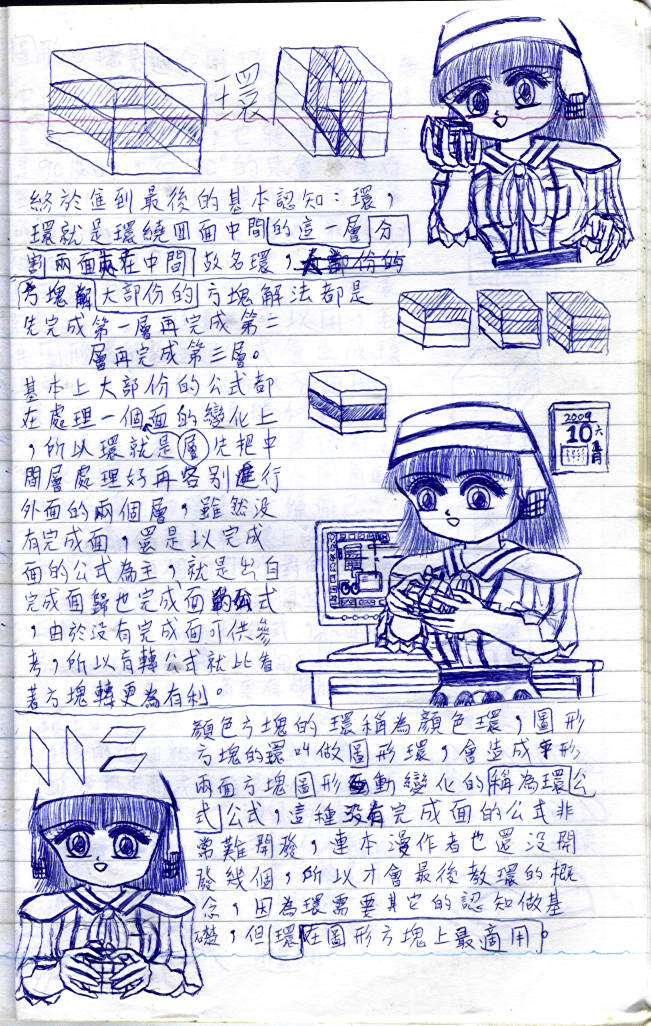 環
終於進到最後的基本認知：環，
環就是環繞四面中間的這一層分
割兩面處在中間故名環，大部份的
方塊解大部份的方塊解法都是
先完成第一層再完成第二
層再完成第三層。
2009
10
六
月
基本上大部份的公式都
在處理一個面的變化上
，所以環就是層先把中
間層處理好再容別進行
外面的兩個層，雖然沒
有完成面，還是以完成
面的公式為主，就是出自
完成面歸也完成面的公式
，由於沒有完成面可供參
考，所以盲轉公式就比看
著方塊轉更為有利。
顏色方塊的環稱為顏色環，圖形
方塊的環叫做圖形環，會造成平形
兩面方塊圖形動變化的稱為環公
式公式，這種沒有完成面的公式非
常難開發，連本漫作者也還沒開
發幾個，所以才會最後教環的概
念，因為環需要其它的認知做基
礎，但環在圖形方塊上最適用。